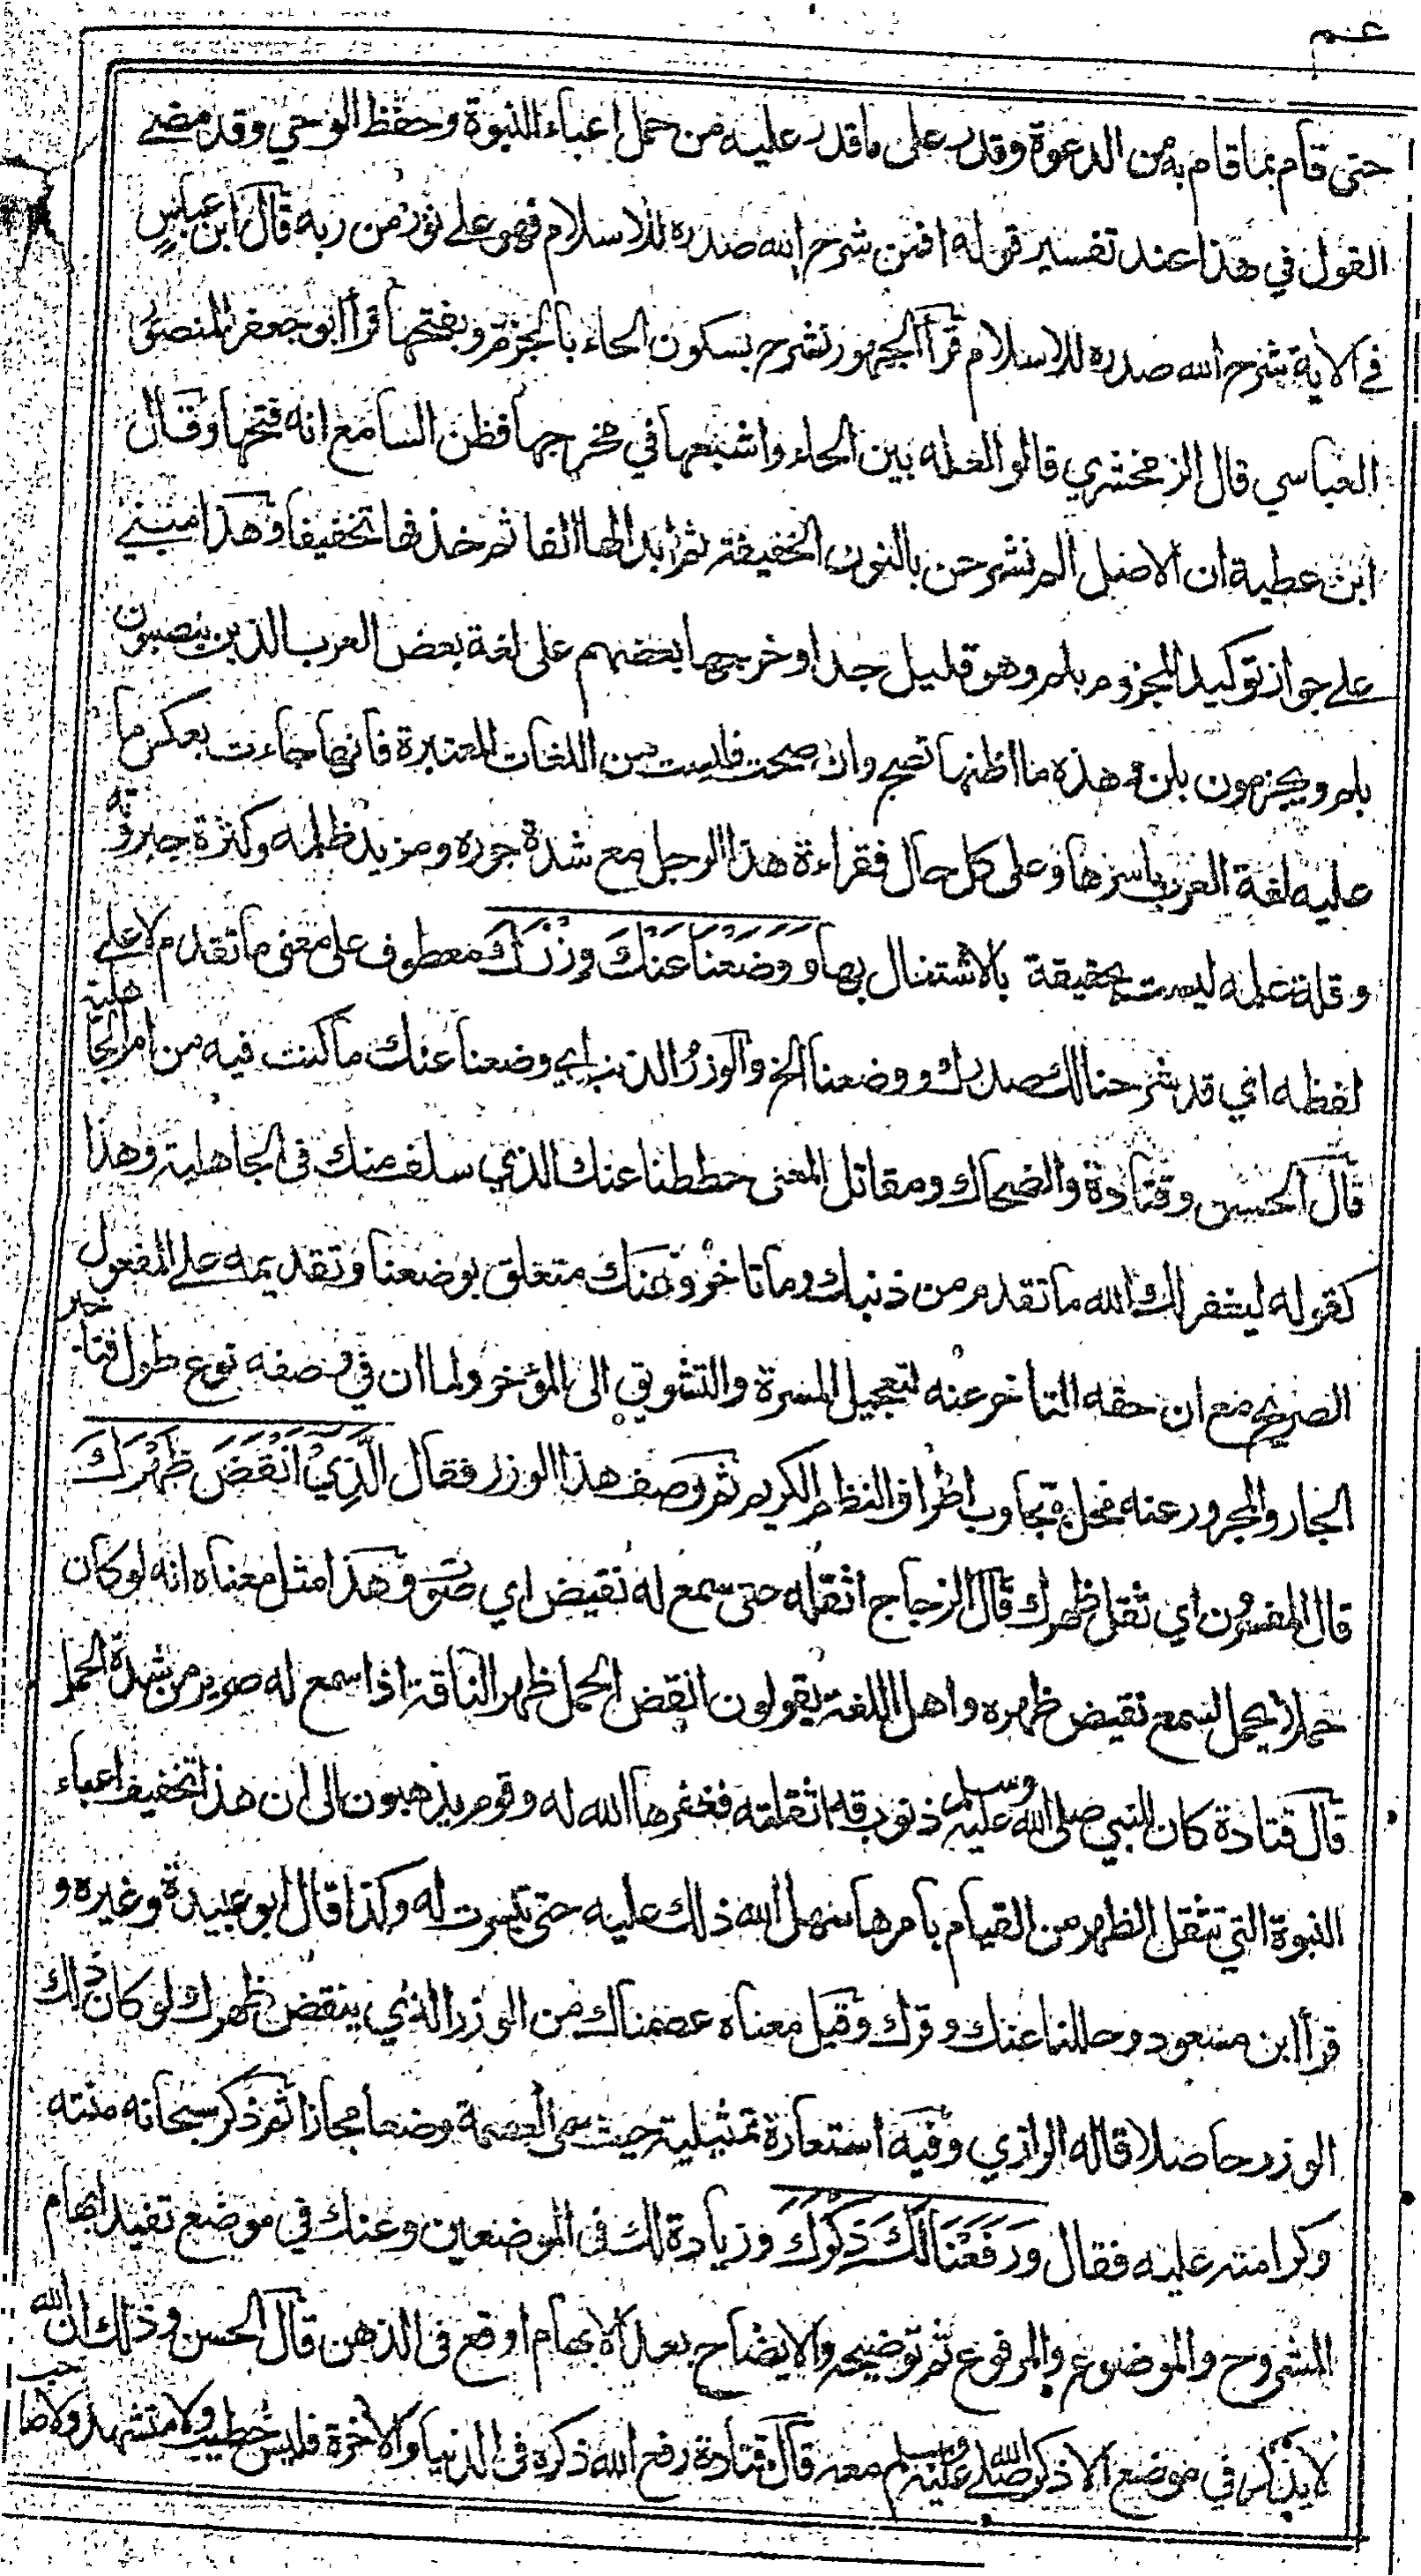 عم
حتى قام بما قام به من الدعوة وقدر على ما قدر عليه من حمل اعباء النبوة وحفظ الوحي وقد مضے
القول في هذا عند تفسير قوله افمن شرح الله صدره للاسلام فهو علے نور من ربه قال ابن عباس
في الاية شرح الله صدره للاسلام قرأ الجمهور نشرح بسكون الحاء بالجزم وبفتحها قرأ ابو جعفر المنصور
العباسي قال الزمخشري قالوا لعله بين الحاء واشبعها في مخرجها فظن السامع انه فتحها وقال
ابن عطية ان الاصل الم نشرحن بالنون الخفيفة ثم ابدالها الفا ثم حذفها تخفيفا وهذا مبنے
علے جواز توكيد المجزوم بلم وهو قليل جدا وخرجها بعضهم على لغة بعض العرب الذين ينصبون
بلم ويجزمون بلن وهذه ما اظنها تصح وان صحت فليست من اللغات المعتبرة فانها جاءت بعكس ما
عليه لغة العرب باسرها وعلى كل حال فقراءة هذا الرجل مع شدة جوره ومزيد ظلمه وكثرة جبروته
وقلة علمه ليست بحقيقة بالاشتغال بها وَوَضَعْنَا عَنْكَ وِزْرَكَ معطوف على معنى ما تقدم لا علے
لفظه اي قد شرحنا لك صدرك ووضعنا الخ والوزر الذنب اي وضعنا عنك ما كنت فيه من امر الجاهلية
قال الحسن وقتادة والضحاك ومقاتل المعنى حططنا عنك الذي سلف منك في الجاهلية وهذا
كقوله ليغفر لك الله ما تقدم من ذنبك وما تاخر وعنك متعلق بوضعنا وتقديمه علے المفعول
الصريح مع ان حقه التاخر عنه لتعجيل المسرة والتشويق الى المؤخر ولما ان في وصفه نوع طول فتاخير
الجار والمجرور عنه مخل بتجاوب اطراف النظم الكريم ثم وصف هذا الوزر فقال الَّذِيْ اَنْقَضَ ظَهْرَكَ
قال المفسرون اي ثقل ظهرك قال الزجاج اثقله حتى سمع له نقيض اي صوت وهذا مثل معناه انه لو كان
حملا يحمل لسمع نقيض ظهره واهل اللغة يقولون انقض الحمل ظهر الناقة اذا سمع له صرير من شدة الحمل
قال قتادة كان للنبي صلى الله عليه وسلم ذنوب قد اثقلته فغفرها الله له وقوم يذهبون الى ان هذا تخفيف اعباء
النبوة التي تثقل الظهر من القيام بامرها سهل الله ذلك عليه حتى تيسرت له وكذا قال ابو عبيدة وغيره و
قرأ ابن مسعود وحللنا عنك وقرك وقيل معناه عصمناك من الوزر الذي ينقض ظهرك لو كان ذلك
الوزر حاصلا قاله الرازي وفيه استعارة تمثيلية حيث سمى العصمة وضعا مجازا ثم ذكر سبحانه منته
وكرامته عليه فقال وَرَفَعْنَا لَكَ ذِكْرَكَ وزيادة لك في الموضعين وعنك في موضع تفيد ابهام
المشروح والموضوع والمرفوع ثم توضيحه والايضاح بعد الابهام اوقع في الذهن قال الحسن وذلك ان الله
لا يذكر في موضع الا ذكر صلى الله عليه وسلم معه قال قتادة رفع الله ذكره في الدنيا والاخرة فليس خطيب ولا متشهد ولا صاحب